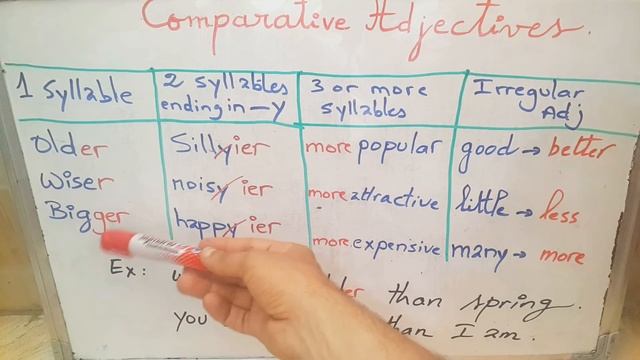 Comparative Adjectives.
1 Syllable
2 syllables ending in -y
3 or more syllables
Irregular Adj
Older
Sillyier
more popular
good → better
Wiser
noisy ier
more attractive
little → less
Bigger
happy ier
more expensive
many → more
Ex:
than spring.
you
than I am.